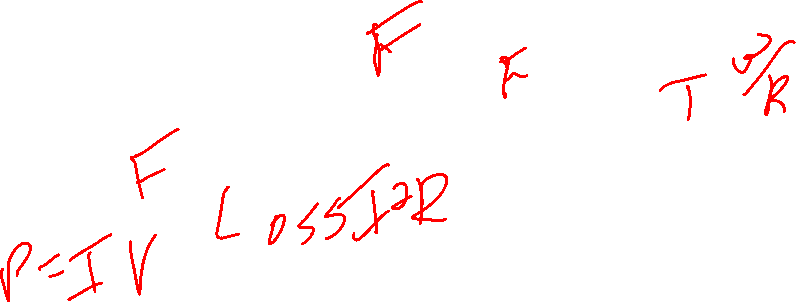 F
F
T
F
Loss I²R
P=IV